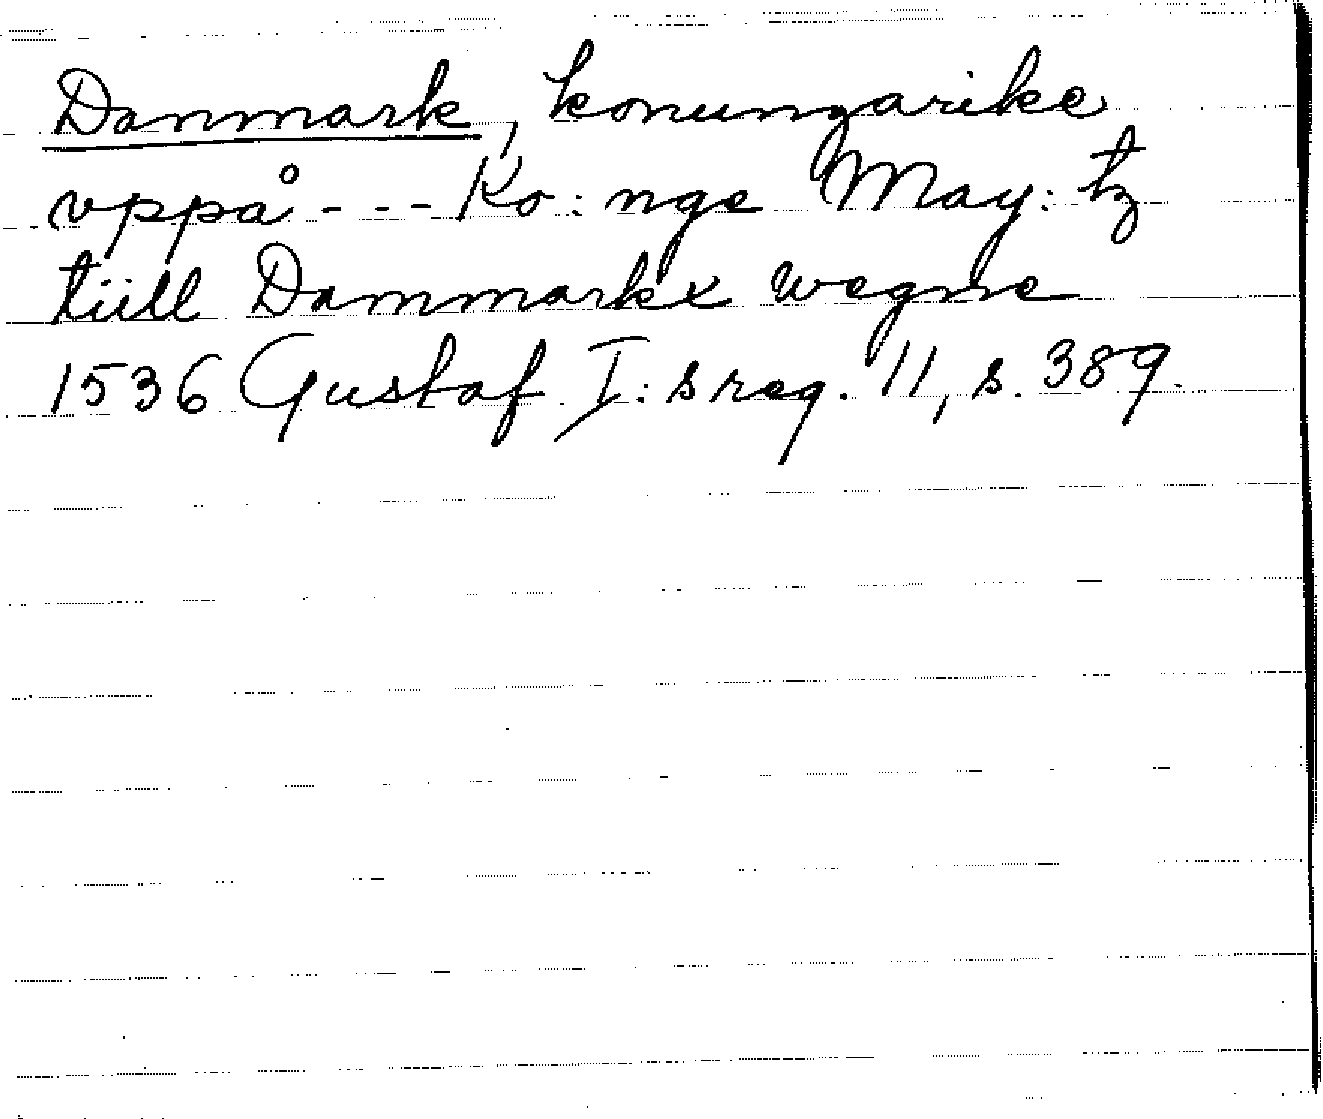 Danmark, konungarike
vppå --- Ko: nge May: tz
tiill Danmarkx wegne
1536 Gustaf I: s reg. 11, s. 389.